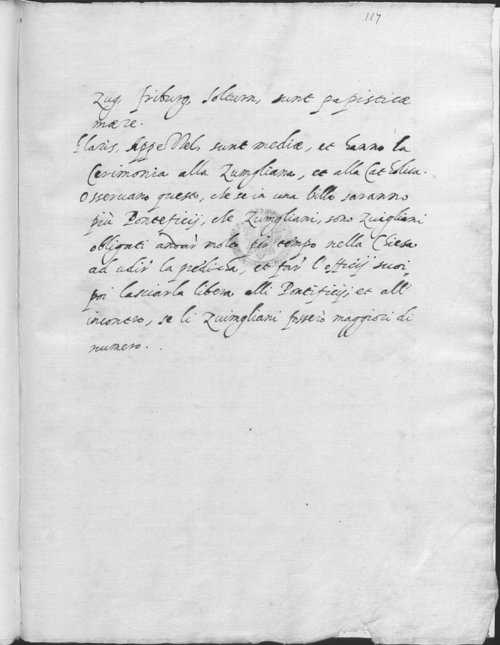 117
Zug, friburg, Solturn, sunt papisticæ
mære.
Glaris, AppenZel, sunt mediæ, et hanno la
Cerimonia alla Zuingliana, et alla Catolica.
Osseruano questo, che se in una Villa saranno
più Ponteficij, che Zuingliani, sono Zuigliani
obligati andar molto per tempo nella Chiesa
ad udir la predica, et far l'officij suoi,
poi lasciarla libera alli Pontificij, et all'
incontro, se li Zuingliani fosserò maggiori di
numero.